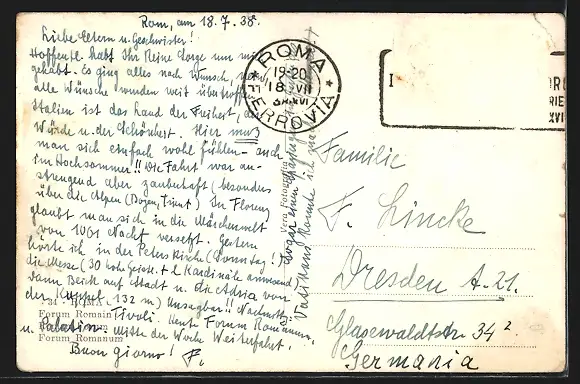 Rom, am 18.7.38.
Liebe Eltern u. Geschwister!
Hoffentl. habt Ihr keine Sorge um mich
gehabt. Es ging alles nach Wunsch, ja
alle Wünsche wurden weit übertroffen.
Italien ist das Land der Freiheit, der
Würde u. der Schönheit. Hier muß
man sich einfach wohl fühlen - auch
im Hochsommer!! Die Fahrt war an-
strengend aber zauberhaft (besonders
über die Alpen (Bozen, Trient) In Florenz
glaubt man sich in die Märchenwelt
von 1001 Nacht versetzt. Gestern
hörte ich in der Peterskirche (Sonntag!)
die Messe (30 hohe Geistl. + 2 Kardinäle anwesend
dann Blick auf Stadt u. die Adria von
der Kuppel (132 m) Unsagbar!! Nachmittg:
Tivoli. Heute Forum Romanum,
u. Palatin. Mitte der Woche Weiterfahrt.
Buon giorno! F.
Sogar einen
Vatikans konnte ich
731 - ROMA
Forum Romain
Forum Romanum
Vera Fotografia
ROMA
19-20
18 VII
FERROVIA
Familie
F. Lincke
Dresden A. 21.
Glasewaldtstr. 34²
Germania